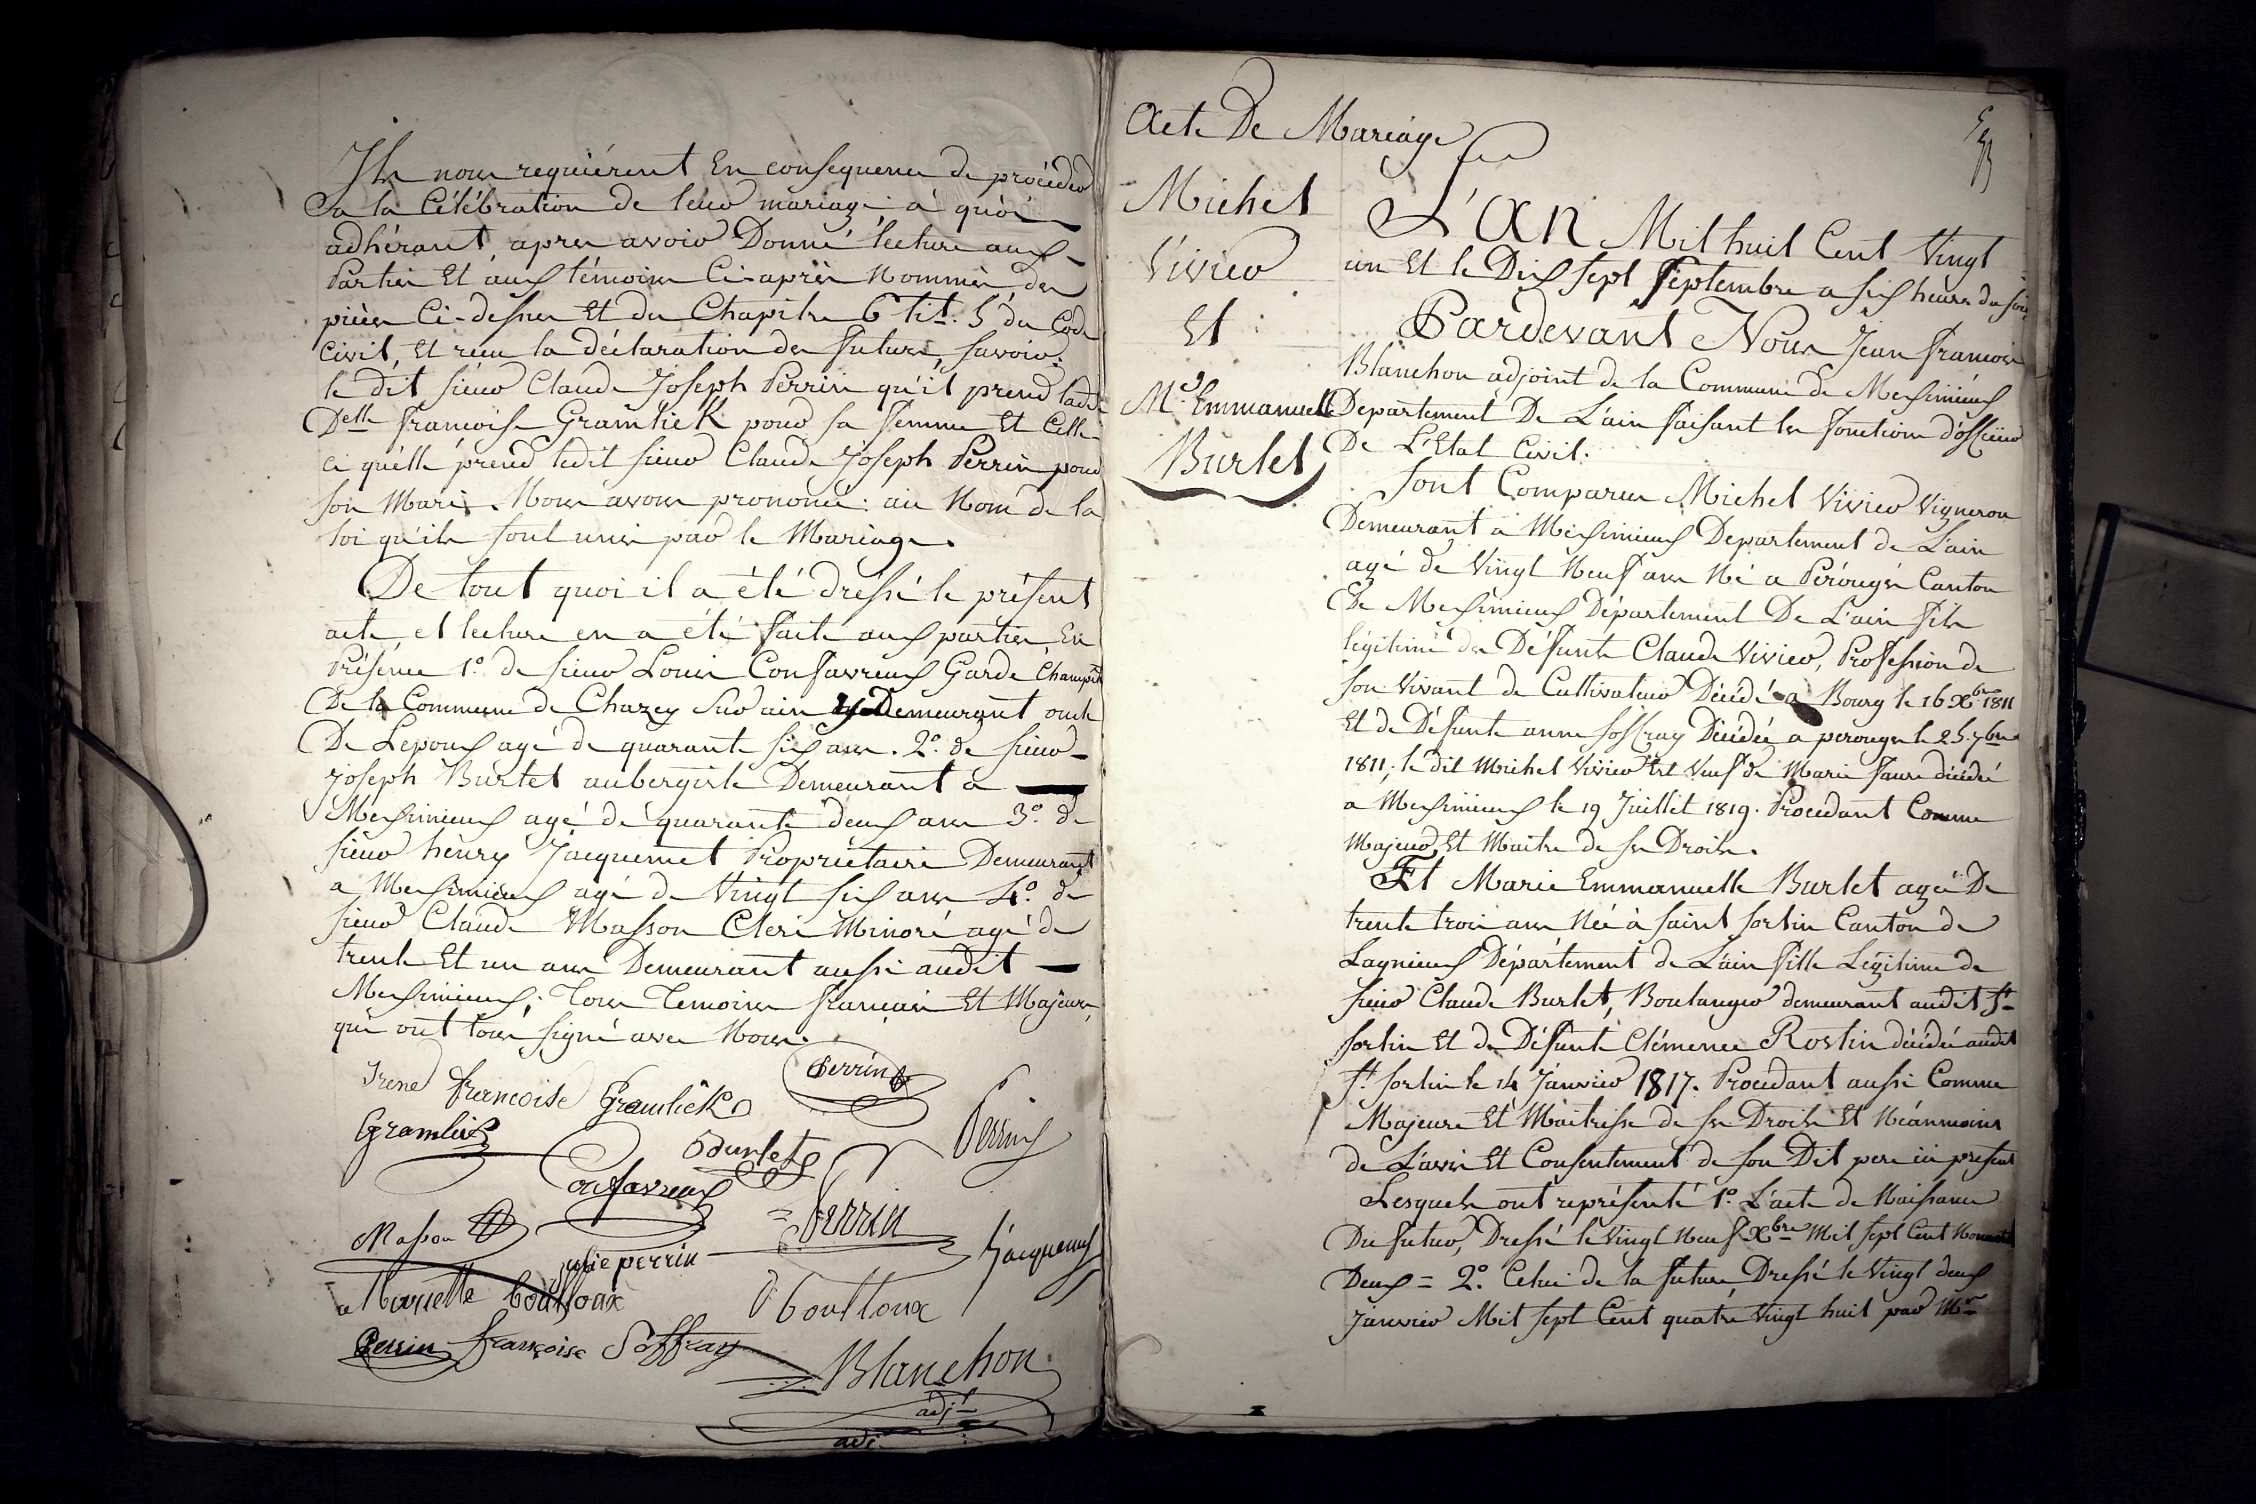 Ils nous requiérent En consequence de procéder
a la Célébration de leur mariage à quoi
adhérant, apres avoir Donné lecture aux
Parties Et aux témoins Ci-après Nommés, des
pièces Ci-dessus Et du Chapitre 6 tit. 5 du Code
Civil, Et reçu la déclaration des futurs, savoir:
le dit sieur Claude Joseph Perrin qu'il prend ladte
Delle francoise Gramlick pour sa femme Et Celle-
ci qu'elle prend ledit sieur Claude Joseph Perrin pour
son Mari. Nous avons prononcé: au Nom de la
loi qu'ils sont unis par le Mariage.
De tout quoi il a été dressé le présent
acte, et lecture en a été faite aux parties, En
Présence 1º. de sieur Louis Confavreux Garde Champêtre
De la Commune de Chazey Sur ain y Demeurant,
De Lepoux agé de quarante six ans. 2º. de sieur
joseph Burlet aubergiste Demeurant à
Meximieux agé de quarante deux ans 3º. de
sieur henry Jacquemet Propriétaire Demeurant
a Meximieux agé de Vingt six ans 4º. de
sieur Claude Masson Clerc Minoré agé de
trente Et un ans Demeurant aussi audit
Meximieux; Tous Temoins francais Et Majeurs,
qui ont tous signé avec Nous.
Irene francoise Gramlick Perrin
Gramlick Burlet Perrin
Confavreux
Masson Perrin
julie perrin Jacquemet
Mariette Couttoux Couttoux
Perrin françoise Soffray
Blanchon
adjt
adj
Acte De Mariage
Michel
Vivier
Et
Mie Emmanuelle
Burlet
L'AN Mil huit Cent Vingt
un Et le Dix sept Septembre a six heures du soir
Pardevant Nous Jean francois
Blanchon adjoint de la Commune de Meximieux
Departement De L'ain faisant les fonctions d'officier
De L'Etat Civil.
Sont Comparus Michel Vivier Vigneron
Demeurant à Meximieux Departement de L'ain
agé de Vingt Neuf ans Né a Pérouges Canton
De Meximieux Département De L'ain fils
légitime de Défunt Claude Vivier, Profession de
son Vivant de Cultivateur Décédé a Bourg le 16 Xbre 1811
Et de Défunte anne soffray Décédée a perouges le 25. 7bre
1811; le dit Michel Vivier Est Veuf de Marie faure décédée
a Meximieux le 19 Juillet 1819. Procedant Comme
Majeur Et Maitre de ses Droits.
Et Marie Emmanuelle Burlet agée De
trente trois ans Née à saint sorlin Canton de
Lagnieux Département de L'ain fille Légitime de
sieur Claude Burlet, Boulanger demeurant audit St
sorlin Et de Défunte Clémence Rostin décédée audit
St sorlin le 14 Janvier 1817. Procedant aussi Comme
Majeure Et Maitresse de ses Droits Et Néanmoins
de L'avis Et Consentement de son Dit pere ici présent
Lesquels ont représenté 1º. L'acte de Naissance
Du futur, Dressé le Vingt Neuf Xbre Mil sept Cent Nonante
Deux = 2º. Celui de la future Dressé le Vingt deux
Janvier Mil sept Cent quatre Vingt huit par Mr